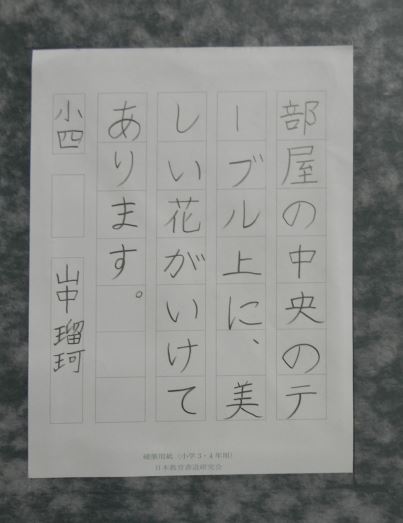 部屋の中央のテ
ーブル上に、美
しい花がいけて
あります。
小四
山中瑠珂
硬筆用紙（小学3・4年用）
日本教育書道研究会